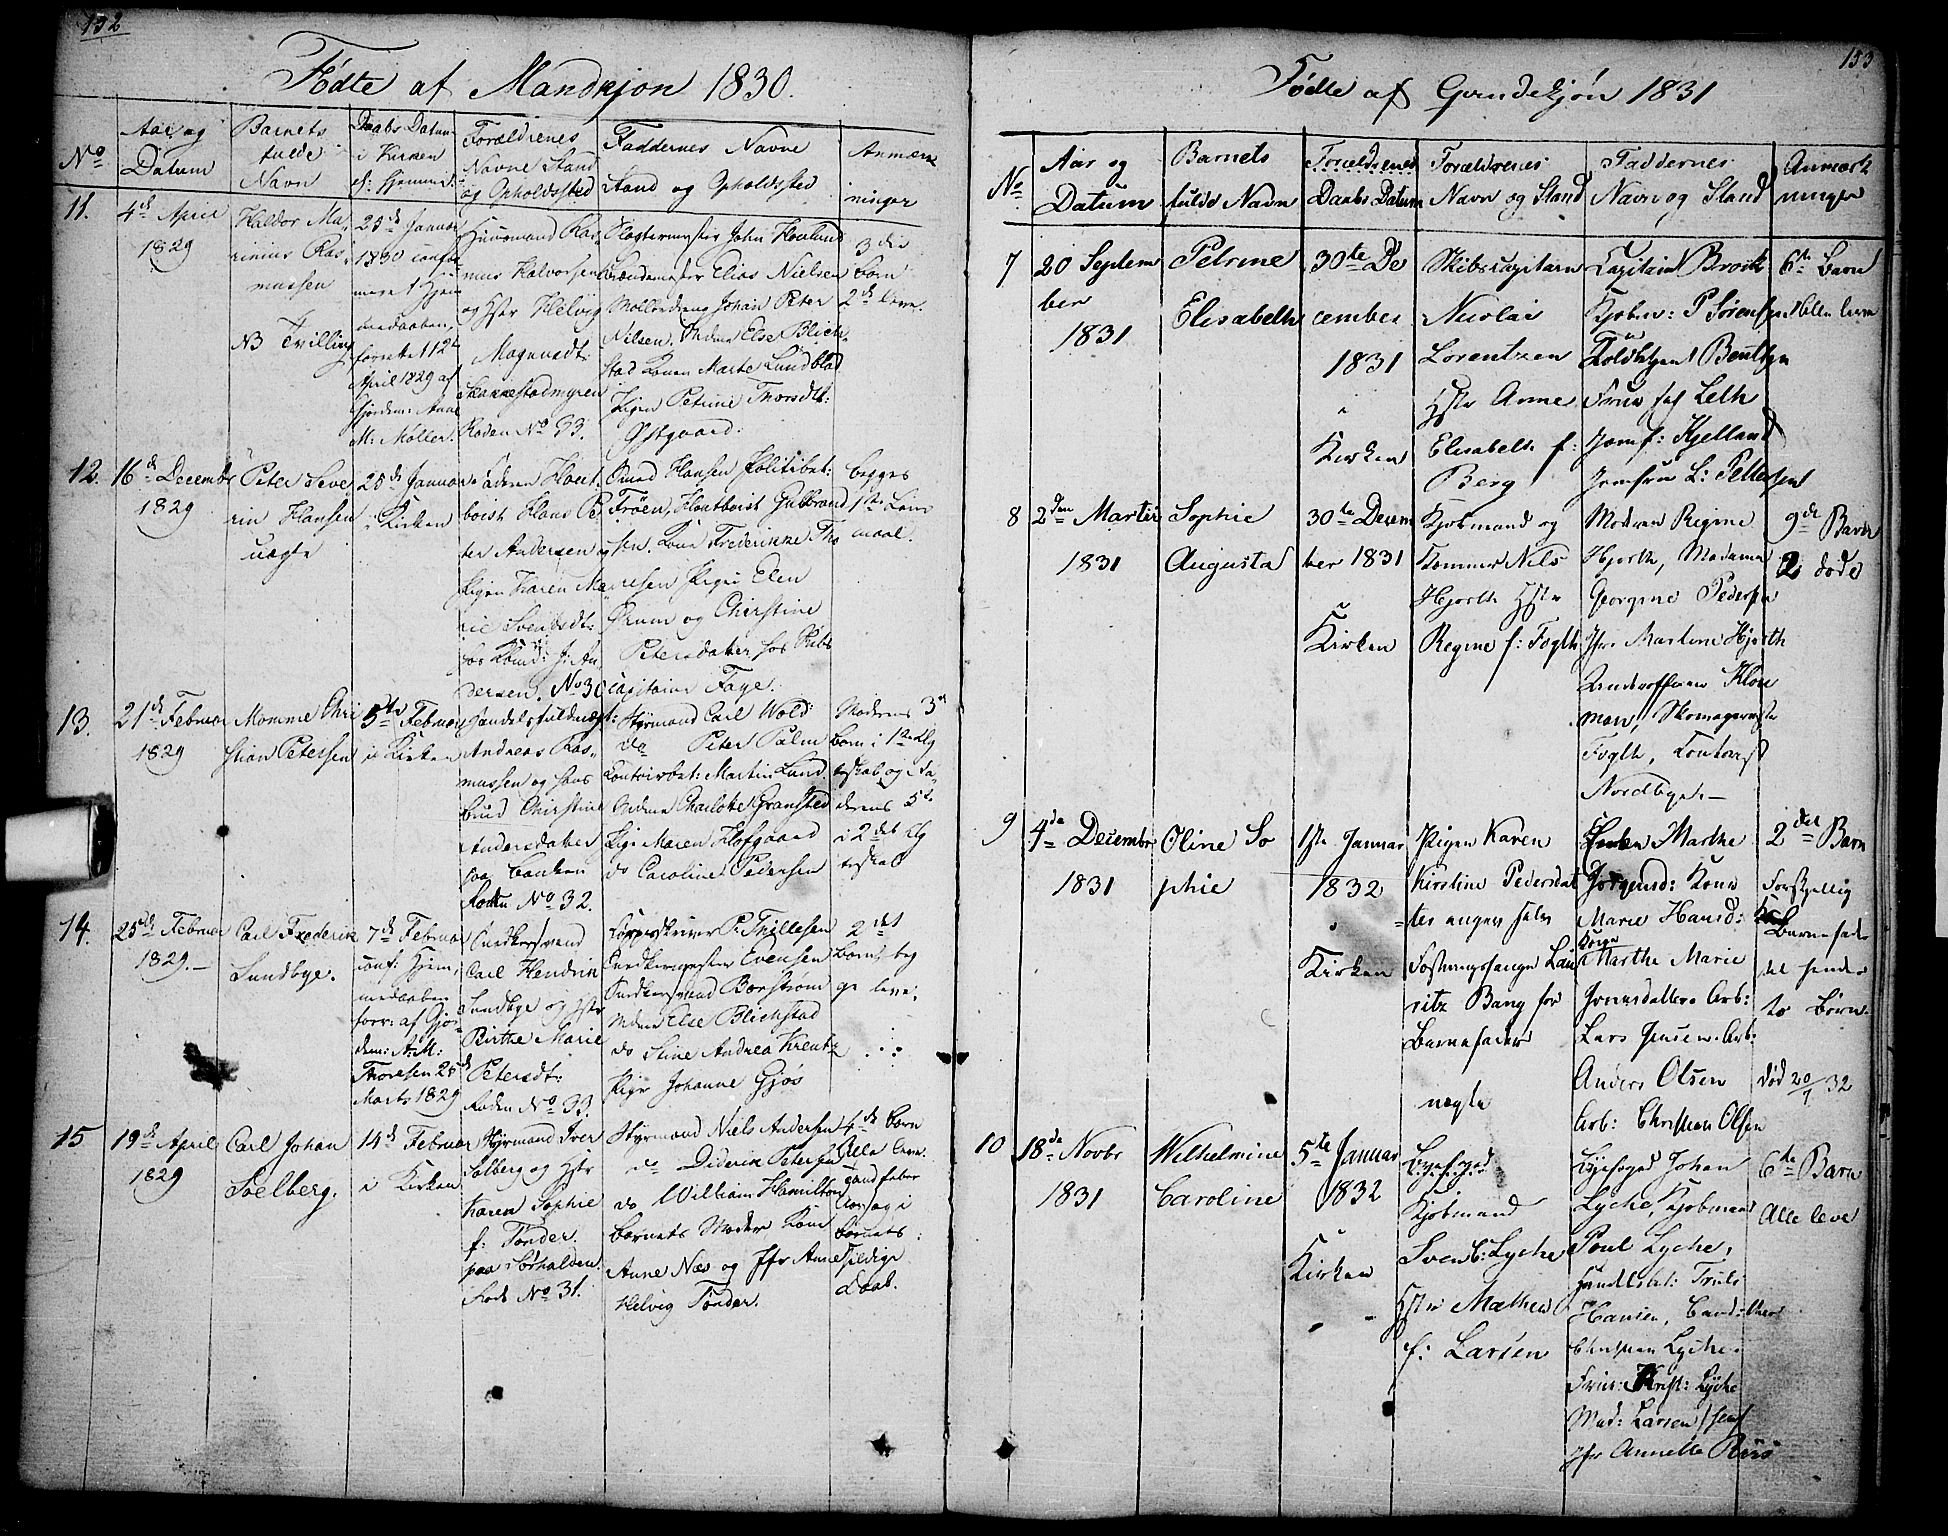 132
Fødte af Mandkjøn 1830.
No
Aar og
Datum
Barnets
fulde
Navn
Daabs Datum
i Kirken
el: Hjemme
Forældrenes
Navne Stand
og Opholdssted
Faddernes Navne
Stand og Opholdssted
Anmærk
ninger
11.
4de April
1829
Haldor Ma-
rinius Ras-
mussen
NB Tvilling
25de Januar
1830
April 1829 af
Gjordem: Anne
M: Møller.
Huusmand Ras-
mus Halvorsen
og Hstr Helvig
Magnusdt:
Skakkestadmyren
Roden No 33.
Slagtermester John Hovlund
Elias Nielsen
Møllerdreng Johan Peter
Nilsen. Mdme Else Blich-
stad Konen Marte Lundblad
Pigen Petrine Thorsdt:
Østgaard.
3die
Barn
2de leve.
12.
16de Decembr
1829
Peter Seve-
rin Hansen
uægte
25de Januar
i Kirken
Faderen Hout-
boist Hans Pe-
ter Andersen og
Pigen Karen Ma-
rie Svendsdt:
hos Kbmd: J: An-
dersen. No 30
Omud Hansen Politibet:
Trøen, Houtboist Gulbrand
sen. Kone Frederikke Tho
resen Pigen Elen
Ørum og Christine
Petersdatter hos Skibs
capitaine Faye.
begges
1ste Leier
maal.
13.
21de Februar
1829
Momme Chri
stian Petersen
5te Februar
i Kirken
Handelsfuldmægt:
Andreas Ras-
mussen og hans
Christine
Andersdatter
paa Banken
Roden No 32.
Styrmand Carl Wold
do Peter Palm
Contoirbet: Martin Lund
Mdme Charlotte Gransted
Pige Maren Hofgaard
do Caroline Pedersen
Moderens 3die
Barn i 1ste Æg
teskab og Fa-
derens 5te
i 2det Æg
teskab
14.
25de Februar
1829.-
Carl Frederik
Lundbye.
7de Februar
conf: Hjem-
medaaben
forr: af Gjor-
dem: A: M:
Thoresen 25de
Marts 1829
Snedkersvend
Carl Hendrik
Lundbye og Hstr
Birthe Marie
Petersdt:
Roden No 33.
P. Thillesen
Snedkermester Evensen
Snedkersvend Borstrøm
Mdme Else Blichstad
do Stine Andrea Kreutz
Pige Johanne Gjøs
2det
Barn, beg
ge leve.
15
19de April
1829
Carl Johan
Solberg.
14de Februar
i Kirken
Styrmand Iver
Solberg og Hstr
Karen Sophie
f: Tønder.
paa Sørhalden.
Rode No 31.
Styrmand Niels Andersen
do Diderik Petersen
do William Hamilton
Barnets Moder Kone
Anne Næs og Jfr Anne
Helvig Tønder.
4de Barn
Alle leve.
Barnets
sildige
Daab.
153
Fødte af Qvindekjøn 1831
No
Aar og
Datum
Barnets
fulde Navn
Forældrenes
Daabs Datum
Forældrenes
Navn og Stand
Faddernes
Navn og Stand
Anmærk
ninger
7
20 Septem
ber
1831
Petrine
Elisabeth
30te De
cember
1831
i
Kirken
Skibscapitain
Nicolai
Lorentzen
Hstr Anne
Elisabeth f:
Berg
Capitain Brock
Kjøbm: P Sørensen
Bentzen
Frue Leth
Jomf: Kjelland
Jomfru L: Pettersen
6te Barn
Alle leve
8
2den Martii
1831
Sophie
Augusta
30te Decem
ber 1831
i
Kirken
Kjøbmand og
Kommer Nils
Hjorth Hstr
Regine f: Fogth
Madam Regine
Hjorth, Madame
Georgine Pedersen
Jfr Martine Hjorth
Underofficeer Klou
man, Skomagermester
Fogth, Contorist
Nordbye.—
9de Barn
2 døde
9
4de December
1831
Oline So
phie
1ste Januar
1832
i
Kirken
Pigen Karen
Kirstine Pedersdat
ter angav selv
Fæstningsfange Lau
ritz Bang for
Barnefader
uægte
Marthe
Jørgensd: Kone
Marie Hansd:
Kone
Marthe Marie
Jonasdatter Arb:
Lars Jensen. Arb:
Anders Olsen
Arb: Christian Olsen
2det Barn
Forskjellig
Barnefader
til hendes
to Børn.
død 20/7 32
10
18de Novbr
1831
Wilhelmine
Caroline
5te Januar
1832
i
Kirken
Byefoged
Kjøbmand
Svend: Lyche
Hstr Mathea
f: Larsen
Byefoged Johan
Lyche, Kjøbmand
Poul Lyche,
Handelsbet: Truls
Hansen, Cand: theol
Christian Lyche.
Frue: Krist: Lyche
Mad: Larsen
Jfr Annette Riis
6te Barn
Alle leve